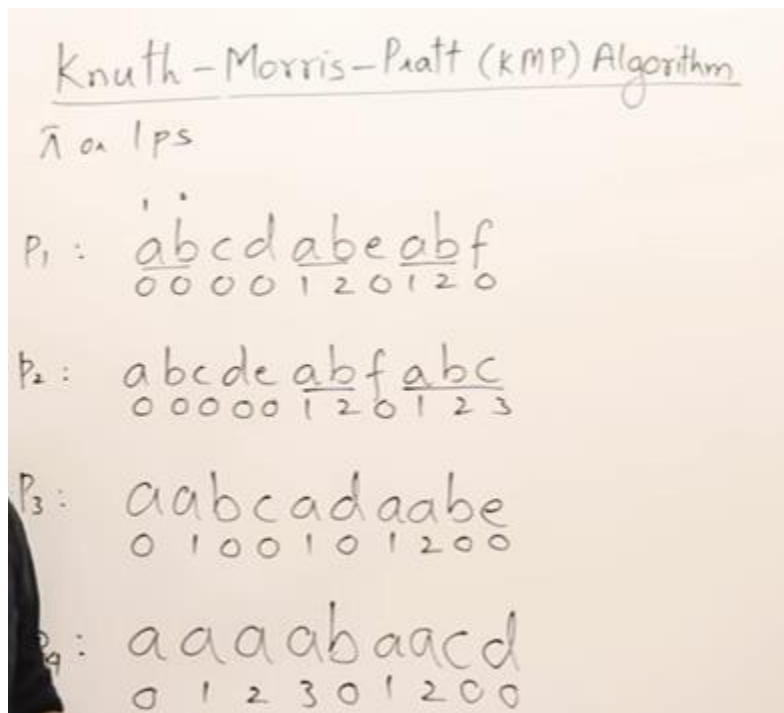 Knuth-Morris-Pratt (KMP) Algorithm
π or lps
P1 : abcdabeabf
0 0 0 0 1 2 0 1 2 0
P2 : abcdeabfabc
0 0 0 0 0 1 2 0 1 2 3
P3 : aabcadaabe
0 1 0 0 1 0 1 2 0 0
P4 : aaaabaacd
0 1 2 3 0 1 2 0 0